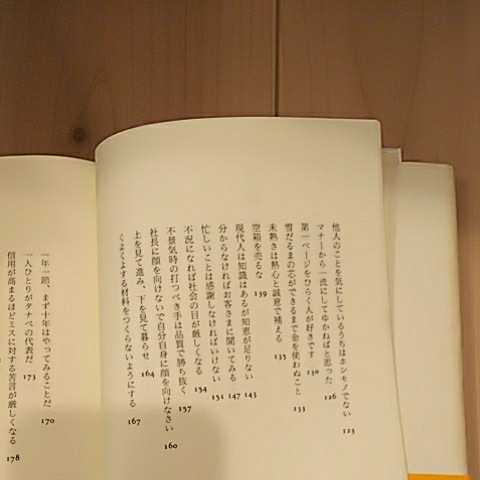 他人のことを気にしているうちはホンモノでない 123
マナーから一流にしてゆかねばと思った 126
第一ページをひらく人が好きです 130
雪だるまの芯ができるまで金を使わぬこと 133
未熟さは熱心と誠意で補える 135
空箱を売るな 139
現代人は知識はあるが知恵が足りない 143
分からなければお客さまに聞いてみる 147
忙しいことは感謝しなければいけない 151
不況になれば社会の目が厳しくなる 154
不景気時の打つべき手は品質で勝ち抜く 157
社長に顔を向けないで自分自身に顔を向けなさい 160
上を見て進み、下を見て暮らせ 164
くよくよする材料をつくらないようにする 167
一年一頭、まず十年はやってみることだ 170
一人ひとりがタナベの代表だ 173
信用が高まるほどミスに対する苦言が厳しくなる 178